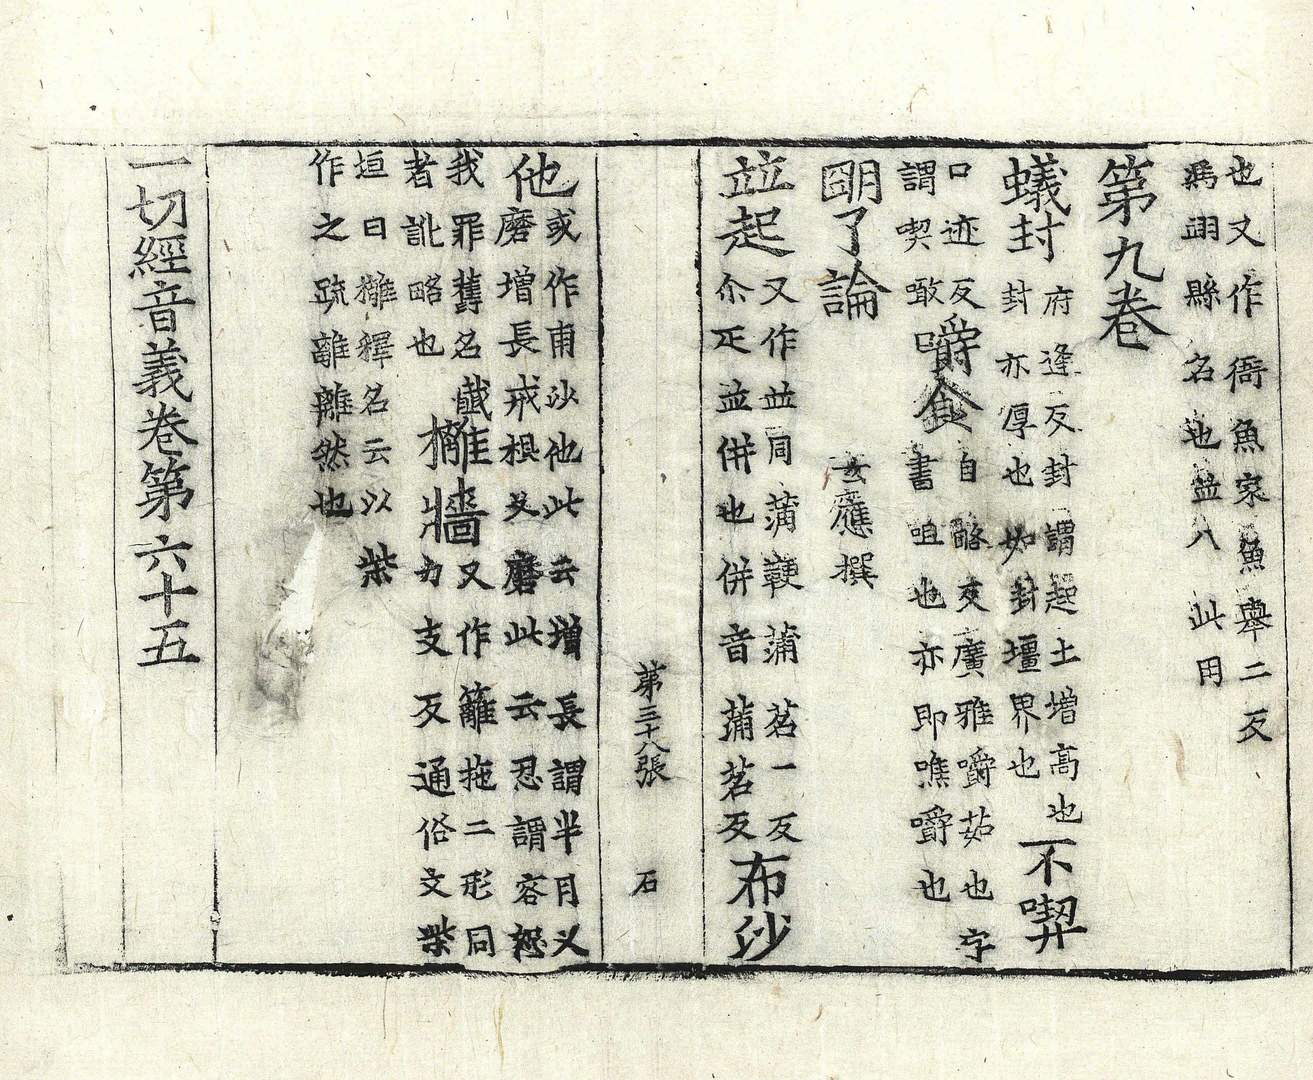 也又作衙魚家魚舉二反
為詡縣名也並八此用
第九卷
蟻封
府逢反封謂起土增高也
封亦厚也如封壃界也
不喫
口迹反
謂喫噉
嚼食
自略交廣雅嚼茹也字
書咀也亦即噍嚼也
明了論
玄應撰
並起
又作並同蒲鞕蒲茗一反
尒疋並併也併音蒲茗反
布沙
第三十八張 石
他
或作甫沙他此云增長謂半月乂
磨增長戒根叉磨此云忍謂容恕
我罪舊名懺
者訛略也
樆牆
又作籬拖二形同
力支反通俗文柴
垣曰樆釋名云以柴
作之疏離離然也
一切經音義卷第六十五